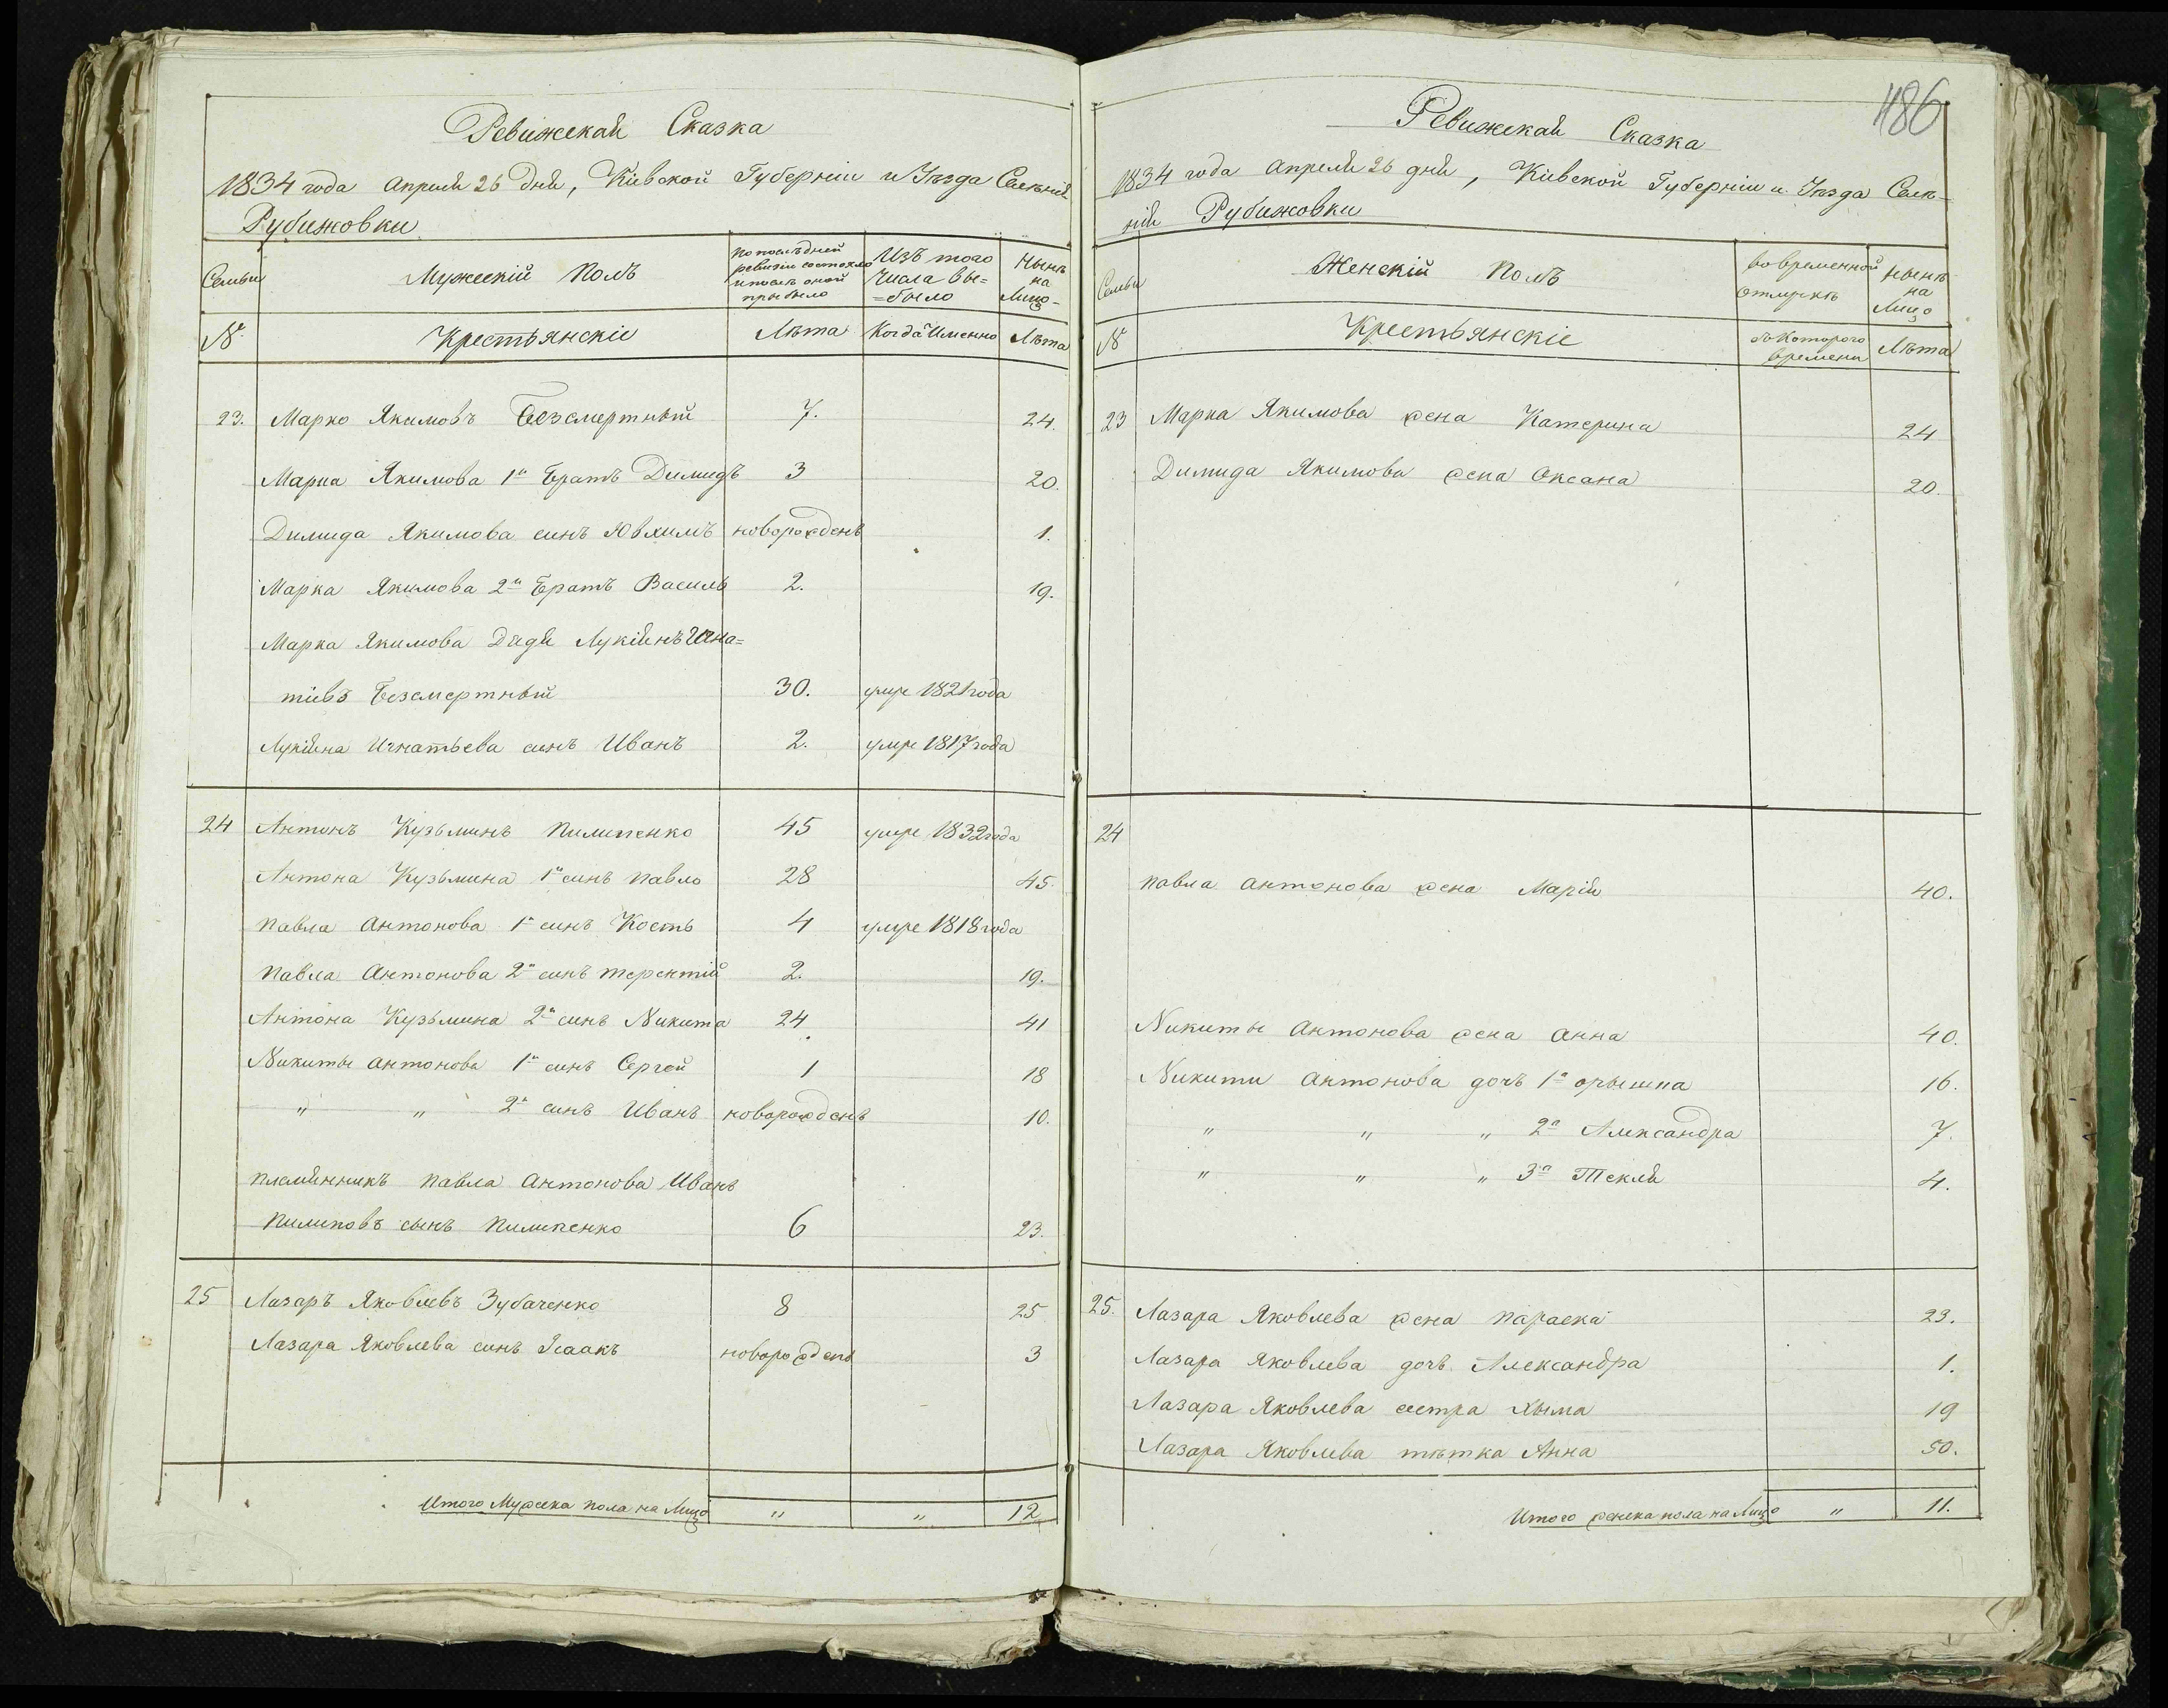 Ревижская Сказка
1834 года Апреля 26 дня, Кіевской Губерніи и Уѣзда Селенія
Рубижовки
Семьи
Мужескій Полъ
По послѣдней ревизіи состояло и послѣ оной прыбыло
Изъ того Числа Вы=
=было
Нынѣ на Лицо
№
Крестьянскіе
Лѣта
Когда Именно
Лѣта
23. Марко Якимовъ Безсмертный 7. 24.
Марка Якимова 1й Братъ Димидъ 3 20.
Димида Якимова синъ Ювхимъ новорожденъ 1.
Марка Якимова 2й Братъ Василь 2. 19.
Марка Якимова Дядя Лукіянъ Игна=
тівъ Безсмертный 30. умре 1821 года
Лукіяна Игнатьева синъ Иванъ 2. умре 1817 года
24 Антонъ Кузьминъ Пилипенко 45 умре 1832 года
Антона Кузьмина 1й синъ Павло 28 45.
Павла Антонова 1й синъ Кость 4 умре 1818 года
Павла Антонова 2й синъ Терентій 2. 19.
Антона Кузьмина 2й синъ Никита 24 41
Никиты Антонова 1й синъ Сергей 1 18
" " 2й синъ Иванъ новорожденъ 10.
Племянникъ Павла Антонова Иванъ
Пилиповъ сынъ Пилипенко 6 23.
25 Лазаръ Яковлевъ Зубаченко 8 25
Лазара Яковлева синъ Ісаакъ новорожденъ 3
Итого Мужеска пола на Лицо " " 12
486
Ревижская Сказка
1834 года Апреля 26 дня, Кіевской Губерніи и Уѣзда Селе-
нія Рубижовки
Семьи
Женскій Полъ
Во временной Отлучкѣ
Нынѣ на Лицо
№
Крестьянскіе
Съ Которого Времени
Лѣта
23 Марка Якимова жена Катерина 24
Димида Якимова жена Оксана 20.
24
Павла Антонова жена Марія 40.
Никиты Антонова жена Анна 40.
Никити Антонова дочъ 1я Орышка 16.
" " " 2я Александра 7.
" " " 3я Текля 4.
25. Лазара Яковлева жена Параска 23.
Лазара Яковлева дочъ Александра 1.
Лазара Яковлева сестра Хыма 19
Лазара Яковлева тѣтка Анна 50.
Итого женска пола на Лицо " 11.